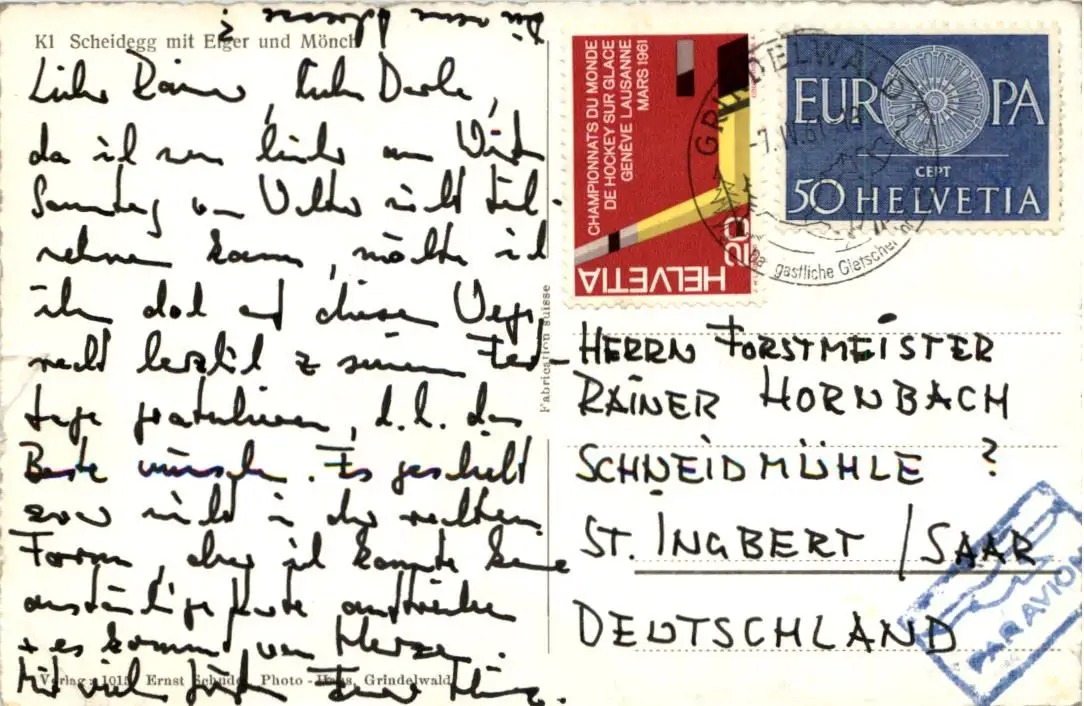 Kl Scheidegg mit Eiger und Mönch
Lieber Rainer, liebe
da ich nun leider am
Samstag am nicht teil-
nehmen kann, möchte ich
ihn doch auf diesem Wege
recht herzlich z seinem Fest-
tage gratulieren, d.h. das
Beste wünschen. Es geschieht
zwar nicht in der rechten
Form, aber ich konnte keine
anständige Karte auftreiben
+ es kommt von Herzen.
Mit vielen Grüßen Euer
Verlag: 1015 Ernst Schudel Photo-Haus, Grindelwald
Fabrication suisse
CHAMPIONNATS DU MONDE
DE HOCKEY SUR GLACE
GENÈVE LAUSANNE
MARS 1961
HELVETIA
20
GRINDELWALD
-7.IV.61-12
gastliche Gletscherdorf
EUROPA
CEPT
50 HELVETIA
HERRN FORSTMEISTER
RAINER HORNBACH
SCHNEIDMÜHLE ?
ST. INGBERT / SAAR
DEUTSCHLAND
PAR AVION